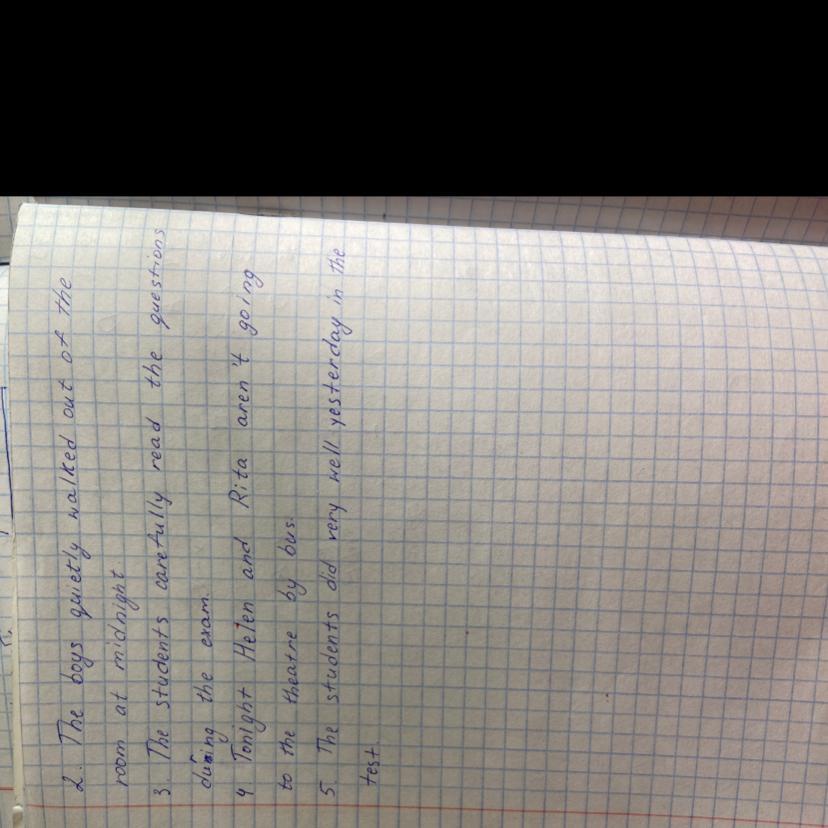 2. The boys quietly walked out of the
room at midnight
3. The students carefully read the questions
during the exam.
4 Tonight Helen and Rita aren't going
to the theatre by bus.
5. The students did very well yesterday in the
test.